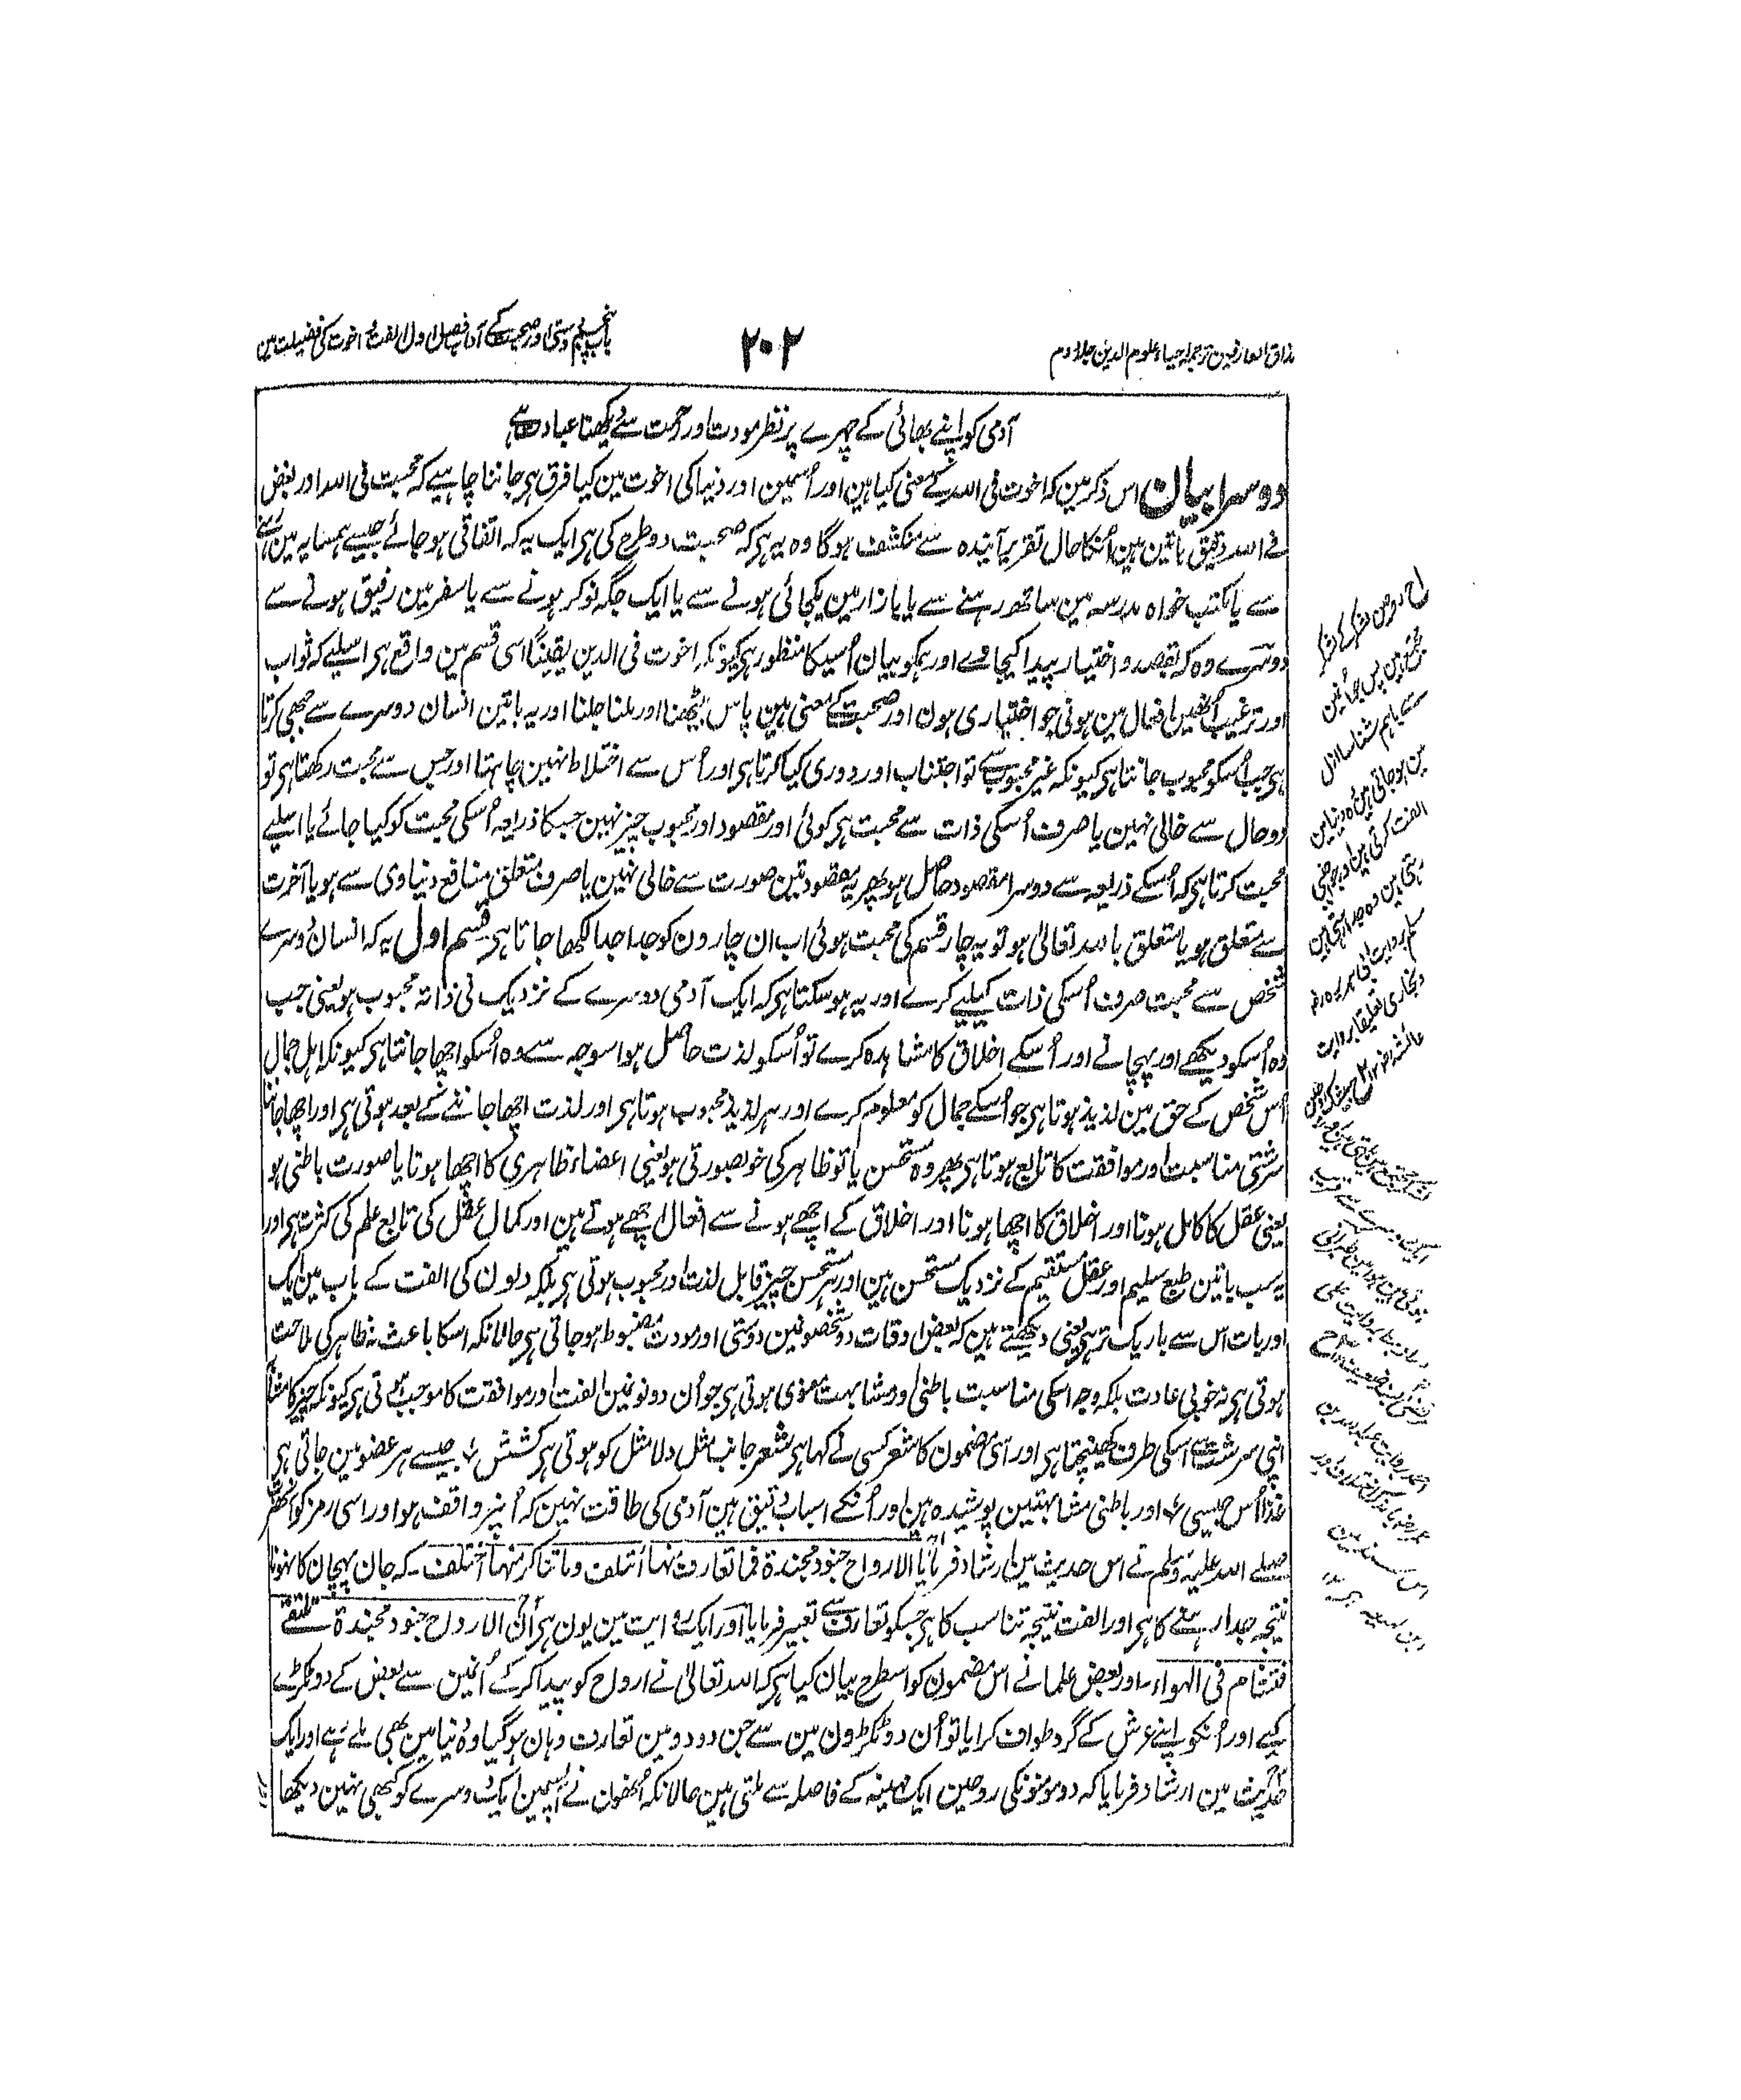 مذاق العارفین ترجمہ احیاء علوم الدین جلد دوم
۲۰۲
باب پنجم دوستی اور صحبت کے آداب فصل اول الفت و اخوت کی فضیلت مین
آدمی کو اپنے بھائی کے چہرے پر نظر مودت اور رحمت سے دیکھنا عبادت ہے
دوسرا بیان اس ذکر مین کہ اخوت فی اللہ کے معنی کیا ہین اور اُسمین اور دنیا کی اخوت مین کیا فرق ہی جاننا چاہیے کہ محبت فی اللہ اور بغض
فے اللہ دقیق باتین ہین اُنکا حال تقریر آیندہ سے منکشف ہوگا وہ یہ ہی کہ صحبت دو طرح کی ہی ایک یہ کہ اتفاقی ہو جائے جیسے ہمسایہ مین رہنے
سے یا مکتب خواہ مدرسہ مین ساتھ رہنے سے یا بازار مین یکجائی ہونے سے یا ایک جگہ نوکر ہونے سے یا سفر مین رفیق ہونے سے
دوسرے وہ کہ بقصد و اختیار پیدا کیجاوے اور ہمکو بیان اُسیکا منظور ہی کیونکہ اخوت فی الدین یقیناً اسی قسم مین واقع ہی اسلیے کہ ثواب
اور ترغیب اُنھین افعال مین ہوتی جو اختیاری ہون اور صحبت کے معنی ہین پاس بیٹھنا اور ملنا جلنا اور یہ باتین انسان دوسرے سے جبھی کرتا
ہی جب اُسکو محبوب جانتا ہی کیونکہ غیر محبوب سے تو اجتناب اور دوری کیا کرتا ہی اور اُس سے اختلاط نہین چاہتا اور جس سے محبت رکھتا ہی تو
دو حال سے خالی نہین یا صرف اُسکی ذات سے محبت ہی کوئی اور مقصود اور محبوب چیز نہین جسکا ذریعہ اُسکی محبت کو کیا جائے یا اسلیے
محبت کرتا ہی کہ اُسکے ذریعہ سے دوسرا مقصود حاصل ہو پھر یہ مقصود تین صورت سے خالی نہین یا صرف متعلق منافع دنیاوی سے ہو یا آخرت
سے متعلق ہو یا متعلق باللہ تعالیٰ ہو تو یہ چار قسم کی محبت ہوئی اب ان چارون کو جدا جدا لکھا جاتا ہی قسم اول یہ کہ انسان دوسرے
شخص سے محبت صرف اُسکی ذات کیلیے کرے اور یہ ہو سکتا ہی کہ ایک آدمی دوسرے کے نزدیک فی ذاتہ محبوب ہو یعنی جب
وہ اُسکو دیکھے اور پہچانے اور اُسکے اخلاق کا مشاہدہ کرے تو اُسکو لذت حاصل ہو اسوجہ سے وہ اُسکو اچھا جانتا ہی کیونکہ اہل جمال
اُس شخص کے حق مین لذیذ ہوتا ہی جو اُسکے جمال کو معلوم کرے اور ہر لذیذ محبوب ہوتا ہی اور لذت اچھا جاننے کے بعد ہوتی ہی اور اچھا جاننا
سرشتی مناسبت اور موافقت کا تابع ہوتا ہی پھر وہ مستحسن یا تو ظاہر کی خوبصورتی ہو یعنی اعضاء ظاہری کا اچھا ہونا یا صورت باطنی ہو
یعنی عقل کا کامل ہونا اور اخلاق کا اچھا ہونا اور اخلاق کے اچھے ہونے سے افعال اچھے ہوتے ہین اور کمال عقل کی تابع علم کی کثرت ہی اور
یہ سب باتین طبع سلیم اور عقل مستقیم کے نزدیک مستحسن ہین اور ہر مستحسن چیز قابل لذت اور محبوب ہوتی ہی بلکہ دلون کی الفت کے باب مین ایک
اور بات اس سے باریک تر ہی یعنی دیکھتے ہین کہ بعض اوقات دو شخصونمین دوستی اور مودت مضبوط ہو جاتی ہی حالانکہ اسکا باعث نہ ظاہر کی ملاحت
ہوتی ہی نہ خوبی عادت بلکہ وجہ اسکی مناسبت باطنی اور مشابہت معنوی ہوتی ہی جو اُن دونونمین الفت اور موافقت کا موجب ہوتی ہی کیونکہ چیز کا مشابہ
اپنی سرشت سے اسکی طرف کھینچتا ہی اور اسی مضمون کا شعر کسی نے کہا ہی شعر جانب مثل دلا مثل کو ہوتی ہی کشش ؛ جیسے ہر عضو مین جاتی ہی
غذا اُس جیسی ؛ اور باطنی مشابہتین پوشیدہ ہین اور اُنکے اسباب دقیق ہین آدمی کی طاقت نہین کہ اُنپر واقف ہو اور اسی رمز کو آنحضرت
صلے اللہ علیہ وسلم نے اس حدیث مین ارشاد فرمایا الارواح جنود مجندۃ فما تعارف منہا ائتلف وما تناکر منہا اختلف ۔ کہ جان پہچان کا نہونا
نتیجہ جدا رہنے کا ہی اور الفت نتیجہ تناسب کا ہی جسکو تعارف سے تعبیر فرمایا اور ایک روایت مین یون ہی ان الارواح جنود مجندۃ تلتقے
فتشام فی الہواء ۔ اور بعض علما نے اس مضمون کو اسطرح بیان کیا ہی کہ اللہ تعالیٰ نے ارواح کو پیدا کر کے اُنمین سے بعض کے دو ٹکڑے
کیے اور اُنکو اپنے عرش کے گرد طواف کرایا تو اُن دو ٹکڑون مین سے جن دو دو مین تعارف وہان ہو گیا وہ دنیا مین بھی ملے رہے اور ایک
حدیث مین ارشاد فرمایا کہ دو مومنونکی روحین ایک مہینہ کے فاصلہ سے ملتی ہین حالانکہ اُنھون نے آپسمین ایک دوسرے کو کبھی نہین دیکھا
سے باہم شناسا ازل
مین ہو جاتی ہین وہ دنیا مین
الفت کرتی ہین اور جو اجنبی
رہتی ہین وہ جدا رہتی ہین
مسلم بروایت ابی ہریرہ رضہ
و بخاری تعلیقا بروایت
عائشہ رضہ ۱۲